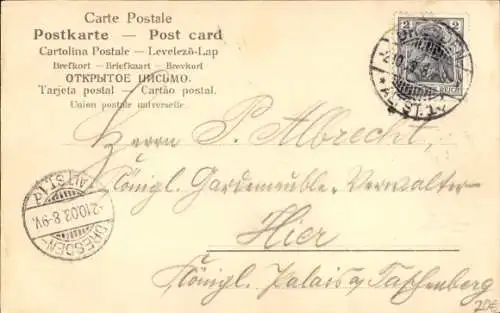 Carte Postale
Postkarte — Post card
Cartolina Postale — Levelező-Lap
Brefkort — Briefkaart — Brevkort
ОТКРЫТОЕ ПИСЬМО.
Tarjeta postal — Cartão postal.
Union postale universelle.
2 2
DRESDEN-
ALTST.1d
2.10.03.8-9V.
Herrn P. Albrecht,
Königl. Gardemeuble-Verwalter
Hier
Königl. Palais a/Taschenberg